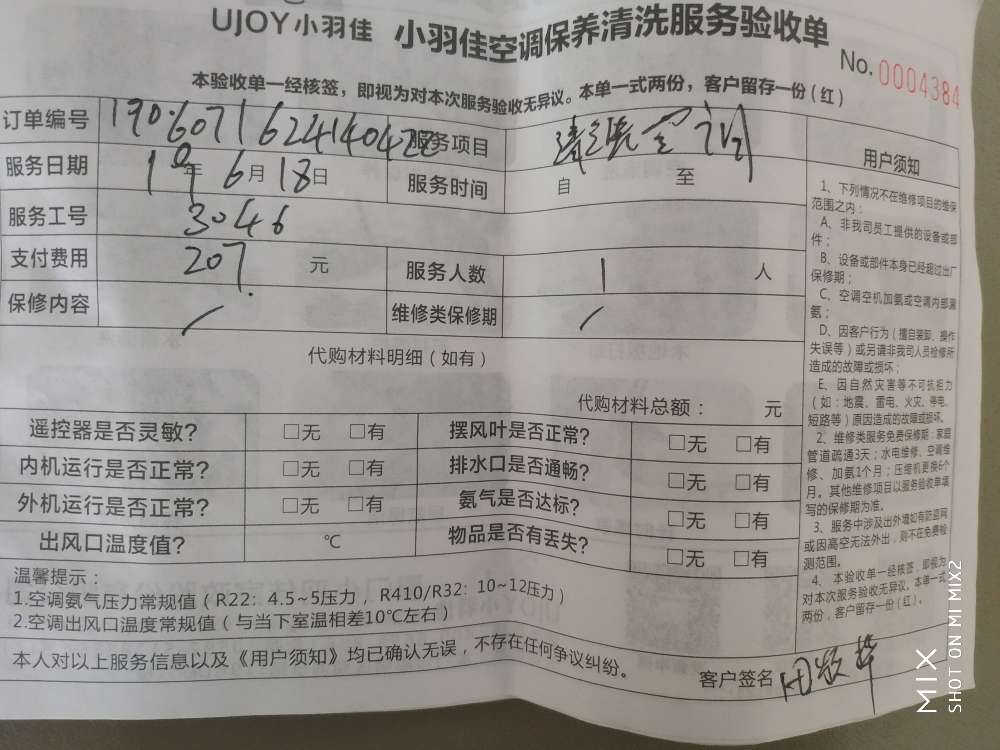 UJOY小羽佳 小羽佳空调保养清洗服务验收单
No. 0004384
本验收单一经核签，即视为对本次服务验收无异议。本单一式两份，客户留存一份（红）
订单编号 服务项目 清洗空调
服务日期 19年 6月 18日 服务时间 自 至
服务工号 3046
支付费用 207. 元 服务人数 1 人
保修内容 / 维修类保修期 /
代购材料明细（如有）
代购材料总额： 元
遥控器是否灵敏？ □无 □有 摆风叶是否正常？ □无 □有
内机运行是否正常？ □无 □有 排水口是否通畅？ □无 □有
外机运行是否正常？ □无 □有 氨气是否达标？ □无 □有
出风口温度值？ ℃ 物品是否有丢失？ □无 □有
温馨提示：
1.空调氨气压力常规值（R22：4.5~5压力， R410/R32：10~12压力）
2.空调出风口温度常规值（与当下室温相差10℃左右）
本人对以上服务信息以及《用户须知》均已确认无误，不存在任何争议纠纷。
客户签名
用户须知
1、下列情况不在维修项目的维保
范围之内：
A、非我司员工提供的设备或部
件；
B、设备或部件本身已经超过出厂
保修期；
C、空调空机加氨或空调内部漏
氨；
D、因客户行为（擅自装卸、操作
失误等）或另请非我司人员检修所
造成的故障或损坏；
E、因自然灾害等不可抗拒力
（如：地震、雷电、火灾、停电、
短路等）原因造成的故障或损坏。
2、维修类服务免费保修期：家庭
管道疏通3天；水电维修、空调维
修、加氨1个月；压缩机更换6个
月。其他维修项目以服务验收单填
写的保修期为准。
3、服务中涉及出外墙如有防盗网
或因高空无法外出，则不在免费检
测范围。
4、本验收单一经核签，即视为
对本次服务验收无异议。本单一式
两份，客户留存一份（红）。
MIX
SHOT ON MI MIX2